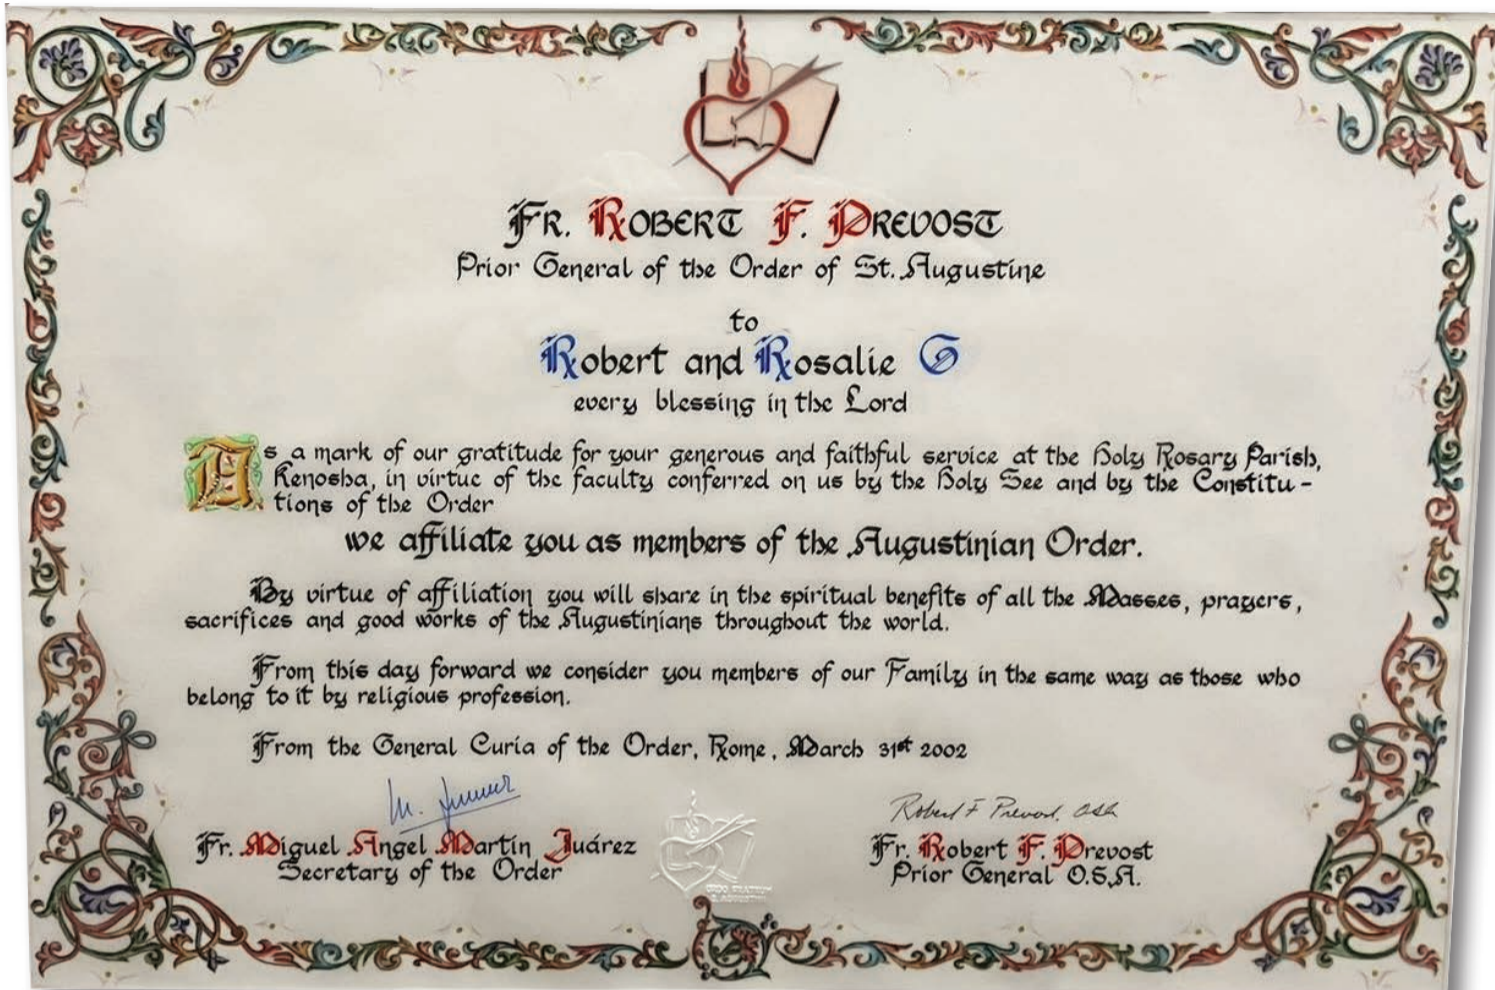 Fr. Robert F. Prevost
Prior General of the Order of St. Augustine
to
Robert and Rosalie G
every blessing in the Lord
As a mark of our gratitude for your generous and faithful service at the Holy Rosary Parish,
Kenosha, in virtue of the faculty conferred on us by the Holy See and by the Constitu-
tions of the Order
we affiliate you as members of the Augustinian Order.
By virtue of affiliation you will share in the spiritual benefits of all the Masses, prayers,
sacrifices and good works of the Augustinians throughout the world.
From this day forward we consider you members of our Family in the same way as those who
belong to it by religious profession.
From the General Curia of the Order, Rome, March 31st 2002
Robert F Prevost, OSA
Fr. Miguel Angel Martín Juárez
Secretary of the Order
Fr. Robert F. Prevost
Prior General O.S.A.